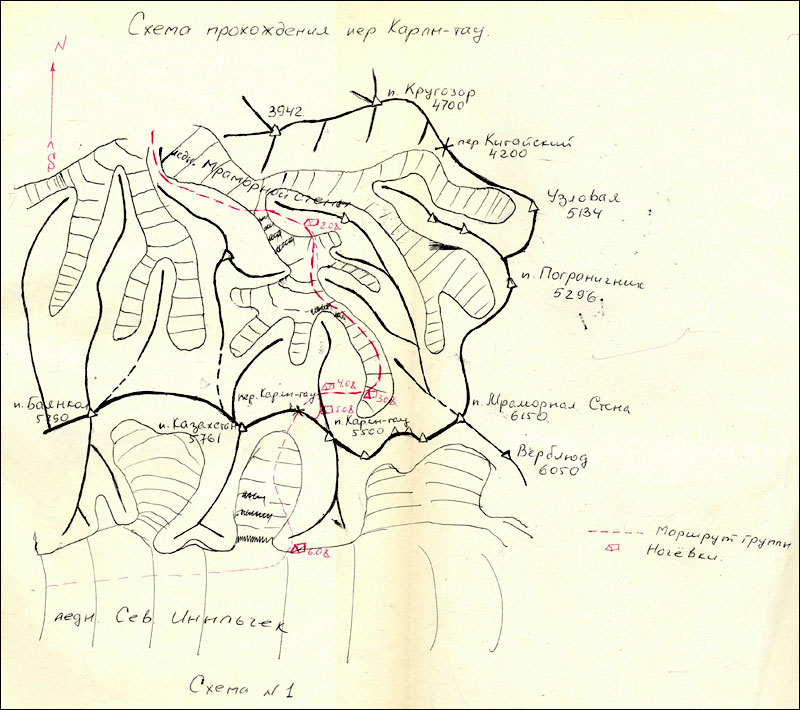 Схема прохождения пер Карлы-тау.
N
S
п. Кругозор
4700
3942
пер Китайский
4200
ледн. Мраморной Стены
Узловая
5134
2.08
п. Пограничник
5296
4.08
3.08
пер. Карлы-тау
5.08
п. Баянкол
5790
п. Казахстан
5761
п. Карлы-тау
5500
п. Мраморная Стена
6150
Верблюд
6050
6.08
Маршрут группы
Ночёвки.
ледн. Сев. Иныльчек
Схема N 1